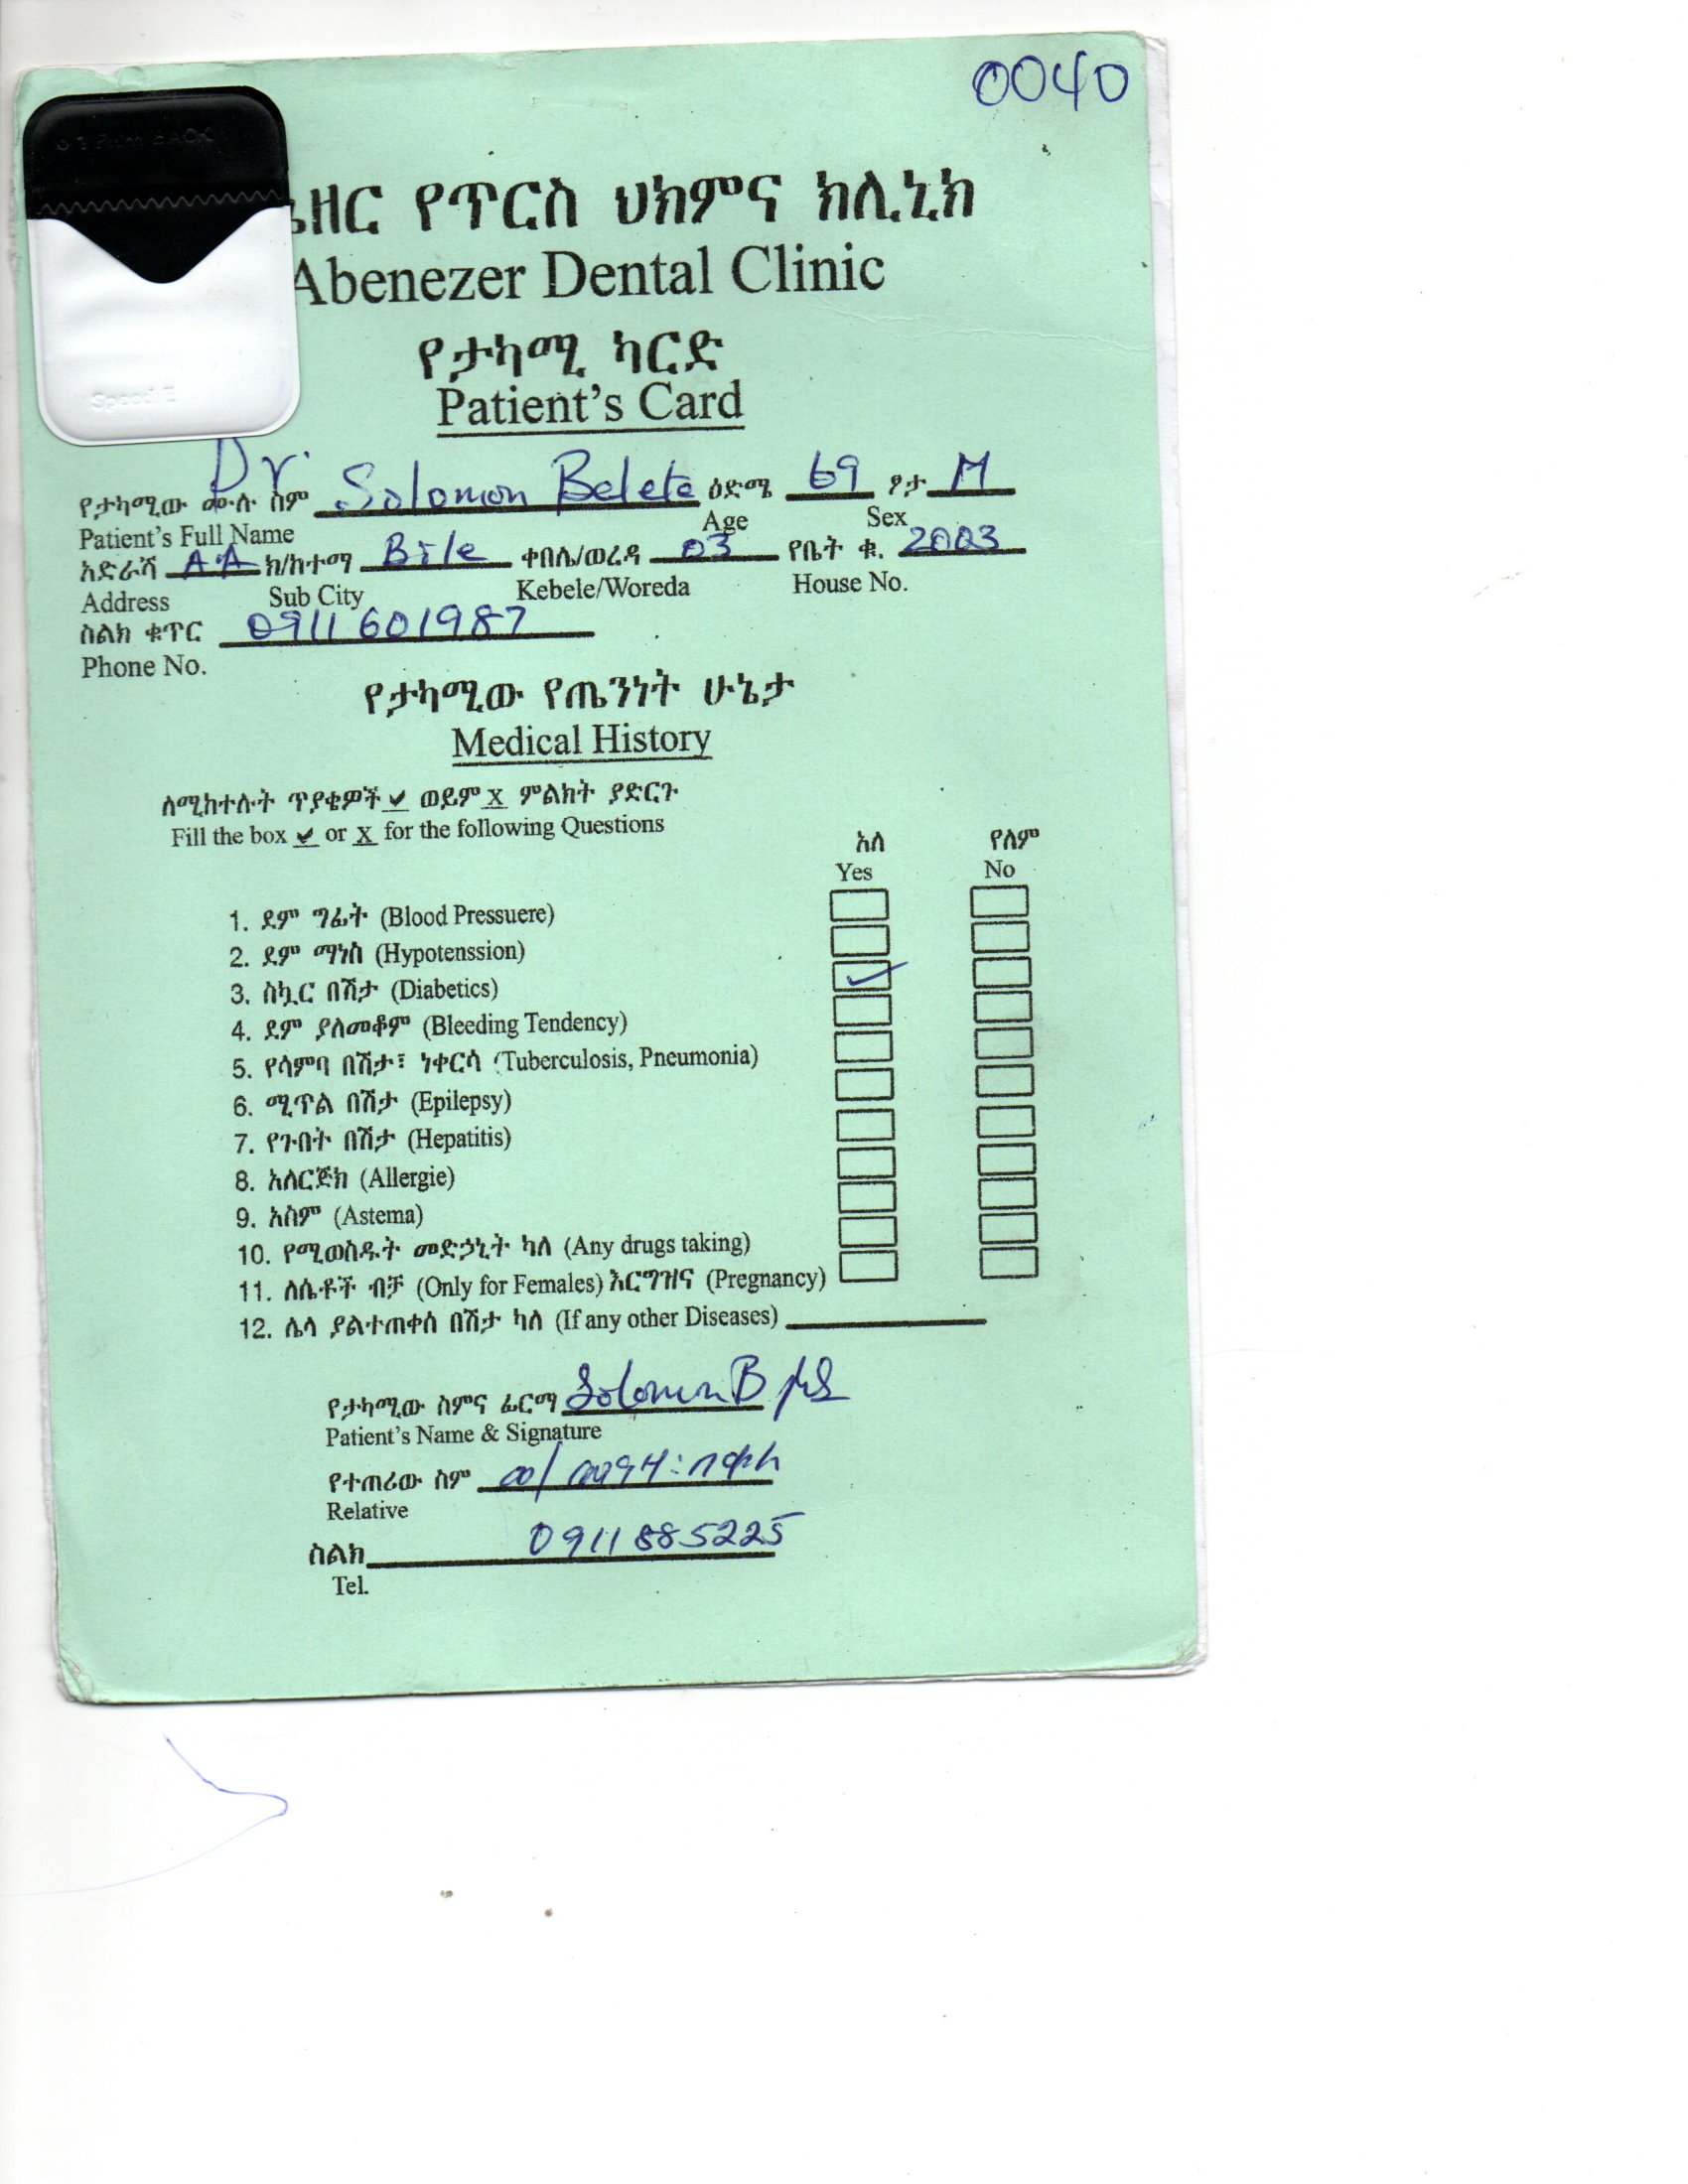 0040
ኤዘር የጥርስ ህክምና ክሊኒክ
Abenezer Dental Clinic
የታካሚ ካርድ
Patient's Card
Dr.
የታካሚው ሙሉ ስም Solomon Belete ዕድሜ 69 ፆታ M
Patient's Full Name Age Sex
አድራሻ AA ክ/ከተማ Bole ቀበሌ/ወረዳ 03 የቤት ቁ. 2003
Address Sub City Kebele/Woreda House No.
ስልክ ቁጥር 0911601987
Phone No.
የታካሚው የጤንነት ሁኔታ
Medical History
ለሚከተሉት ጥያቄዎች ✔ ወይም X ምልክት ያድርጉ
Fill the box ✔ or X for the following Questions
አለ የለም
Yes No
1. ደም ግፊት (Blood Pressuere)
2. ደም ማነስ (Hypotenssion)
3. ስኳር በሽታ (Diabetics) ✓
4. ደም ያለመቆም (Bleeding Tendency)
5. የሳምባ በሽታ፣ ነቀርሳ (Tuberculosis, Pneumonia)
6. ሚጥል በሽታ (Epilepsy)
7. የጉበት በሽታ (Hepatitis)
8. አለርጅክ (Allergie)
9. አስም (Astema)
10. የሚወስዱት መድኃኒት ካለ (Any drugs taking)
11. ለሴቶች ብቻ (Only for Females) እርግዝና (Pregnancy)
12. ሌላ ያልተጠቀሰ በሽታ ካለ (If any other Diseases)
የታካሚው ስምና ፊርማ Solomon B
Patient's Name & Signature
የተጠሪው ስም
Relative
ስልክ 0911885225
Tel.
Speed E